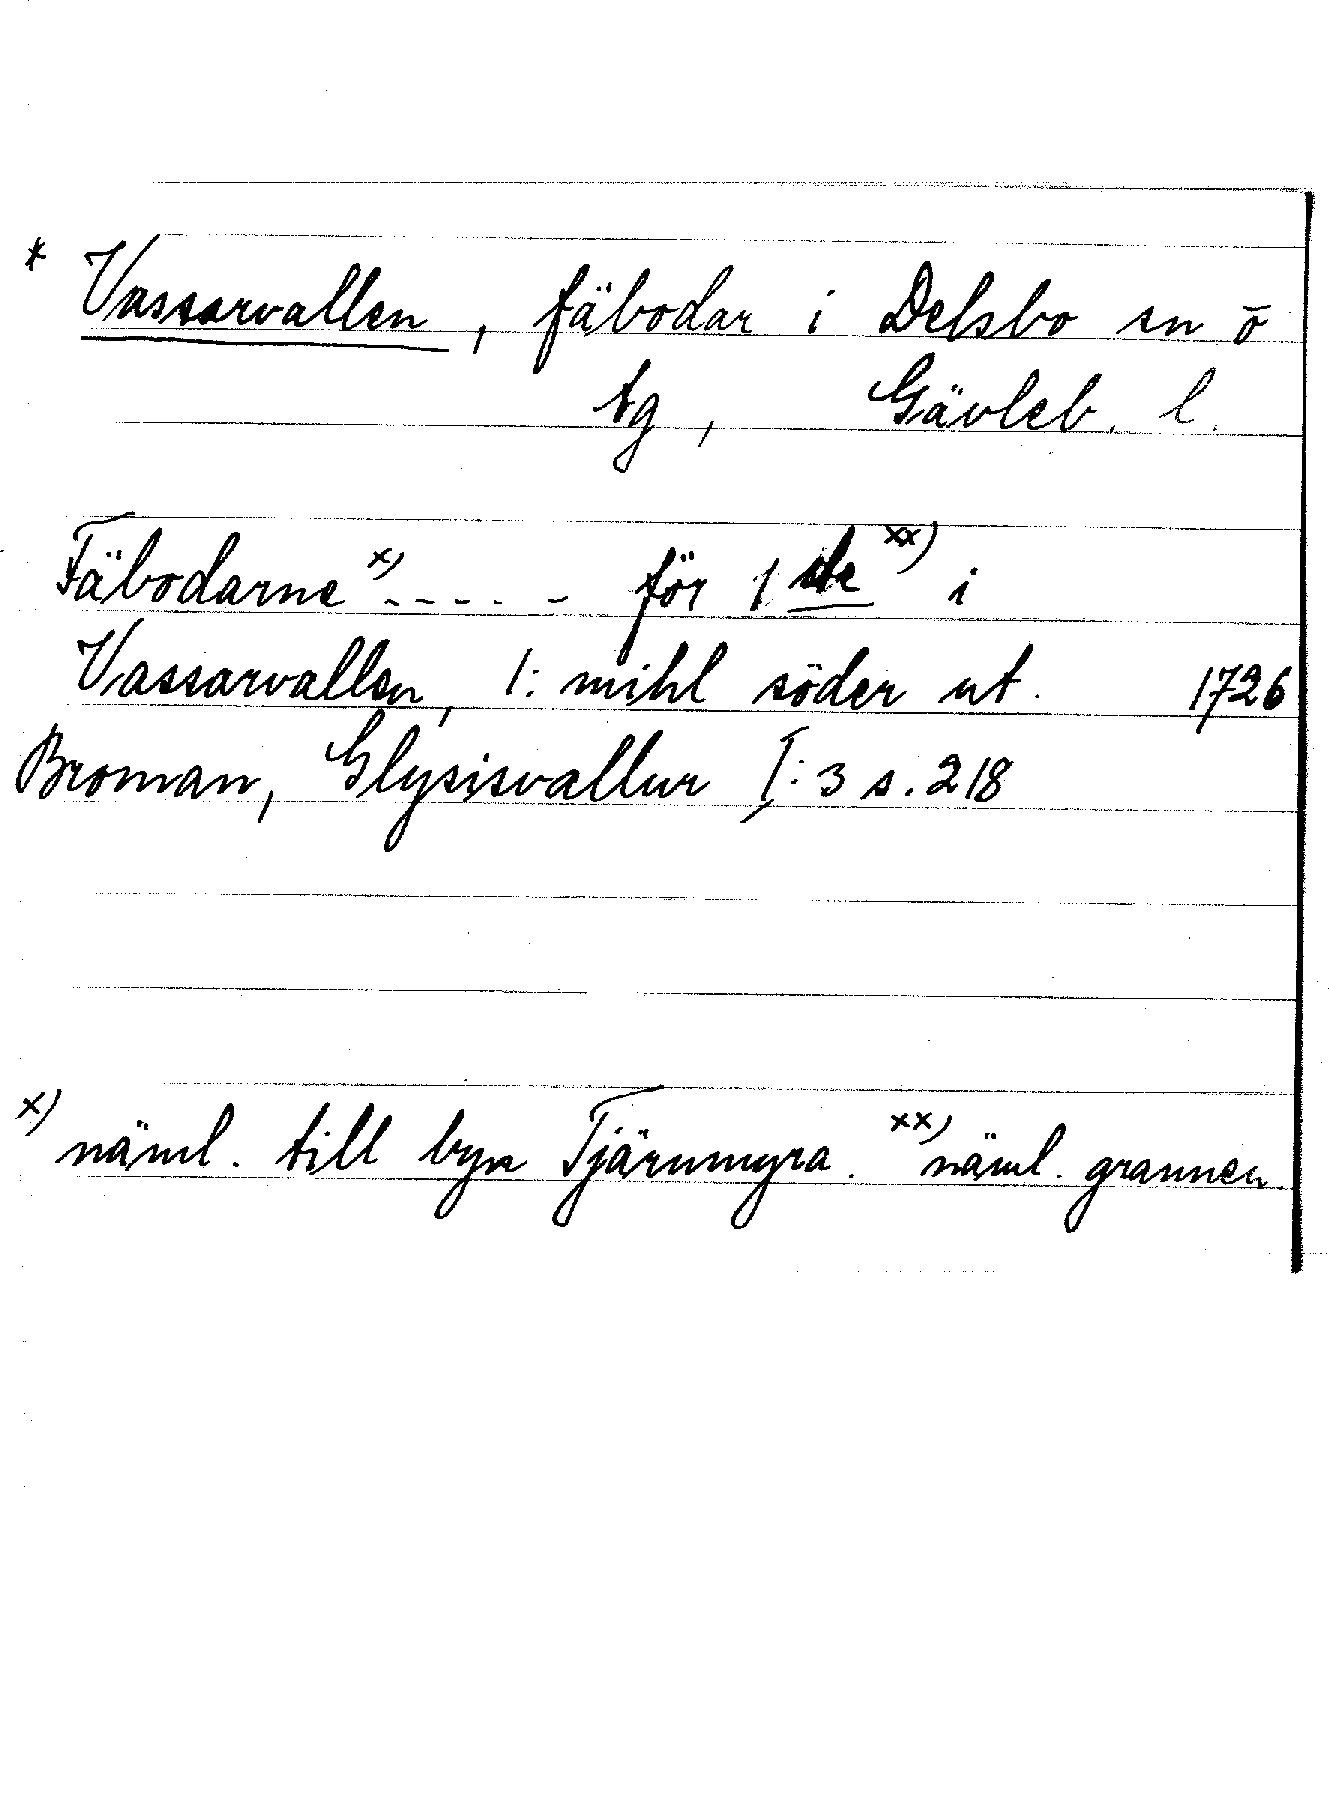 * Vassarvallen, fäbodar i Delsbo sn o
tg, Gävleb. l.
Fäbodarne x) ----- för 1 ste xx) i
Vassarvallen, 1: mihl söder ut. 1726
Broman, Glysisvallur I: 3 s. 218
x) näml. till byn Tjärnmyra. xx) näml. grannen